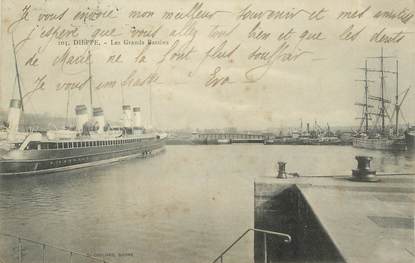 Je vous envoie mon meilleur souvenir et mes amitiés
j'espère que vous allez tous bien et que les dents
103. DIEPPE. - Les Grands Bassins
de Marie ne la font plus souffrir
Je vous embrasse Eva